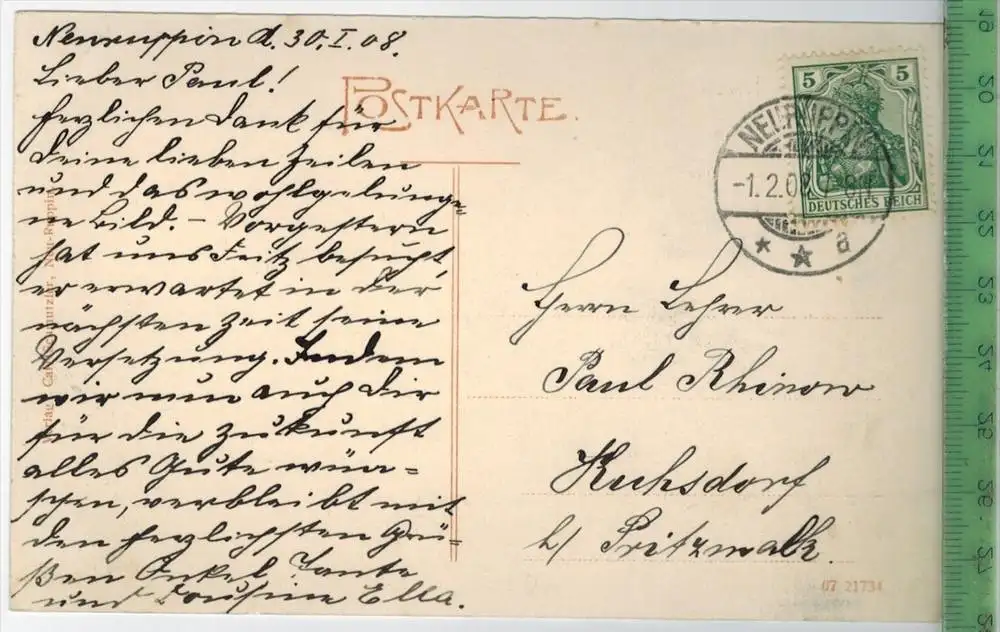 Neuruppin d. 30. I. 08.
Lieber Paul!
Herzlichen Dank für
Deine lieben Zeilen
und das wohlgelunge-
ne Bild. – Vorgestern
hat uns Fritz besucht,
er erwartet in der
nächsten Zeit seine
Versetzung. Indem
wir nun auch Dir
für die Zukunft
alles Gute wün-
schen, verbleibt mit
den herzlichsten Grü-
ßen Onkel, Tante
und Cousine Ella.
POSTKARTE.
Neu-Ruppin
5 5
DEUTSCHES REICH
NEURUPPIN
-1.2.08 7-8
* * a
Herrn Lehrer
Paul Rhinow
Kuhsdorf
b/ Pritzwalk.
07 21734
50
51
52
53
54